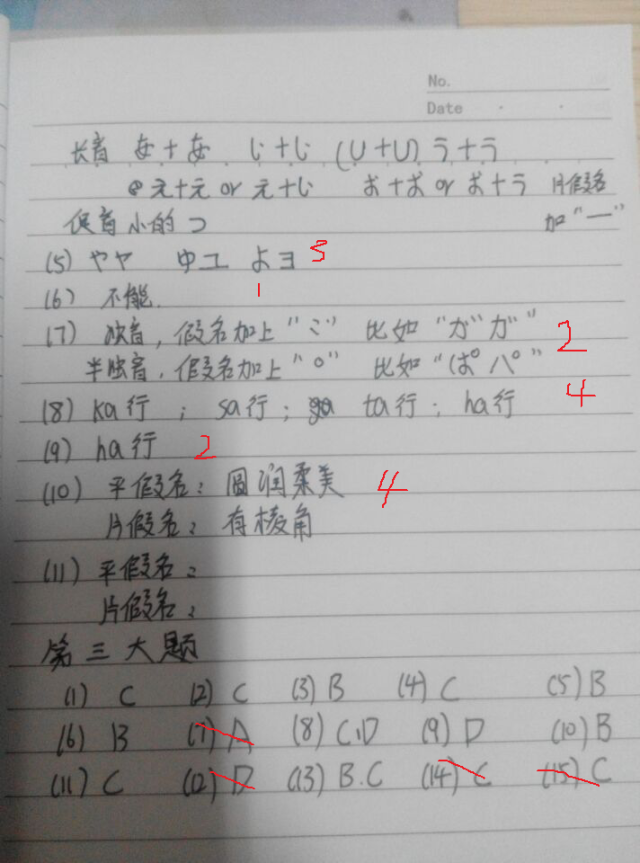 No.
Date
长音 あ+あ い+い (U+U) う+う
え+え or え+い お+お or お+う 片假名
促音小的つ 加"一"
(5) ヤヤ ゆユ よヨ 5
(6) 不能. 1
(7) 浊音,假名加上"〃" 比如"がガ" 2
半浊音,假名加上"°" 比如"ぱパ"
(8) ka行;sa行; ta行;ha行 4
(9) ha行 2
(10) 平假名:圆润柔美 4
片假名:有棱角
(11) 平假名:
片假名:
第三大题
(1) C (2) C (3) B (4) C (5) B
(6) B (7) A (8) C.D (9) D (10) B
(11) C (12) D (13) B.C (14) C (15) C